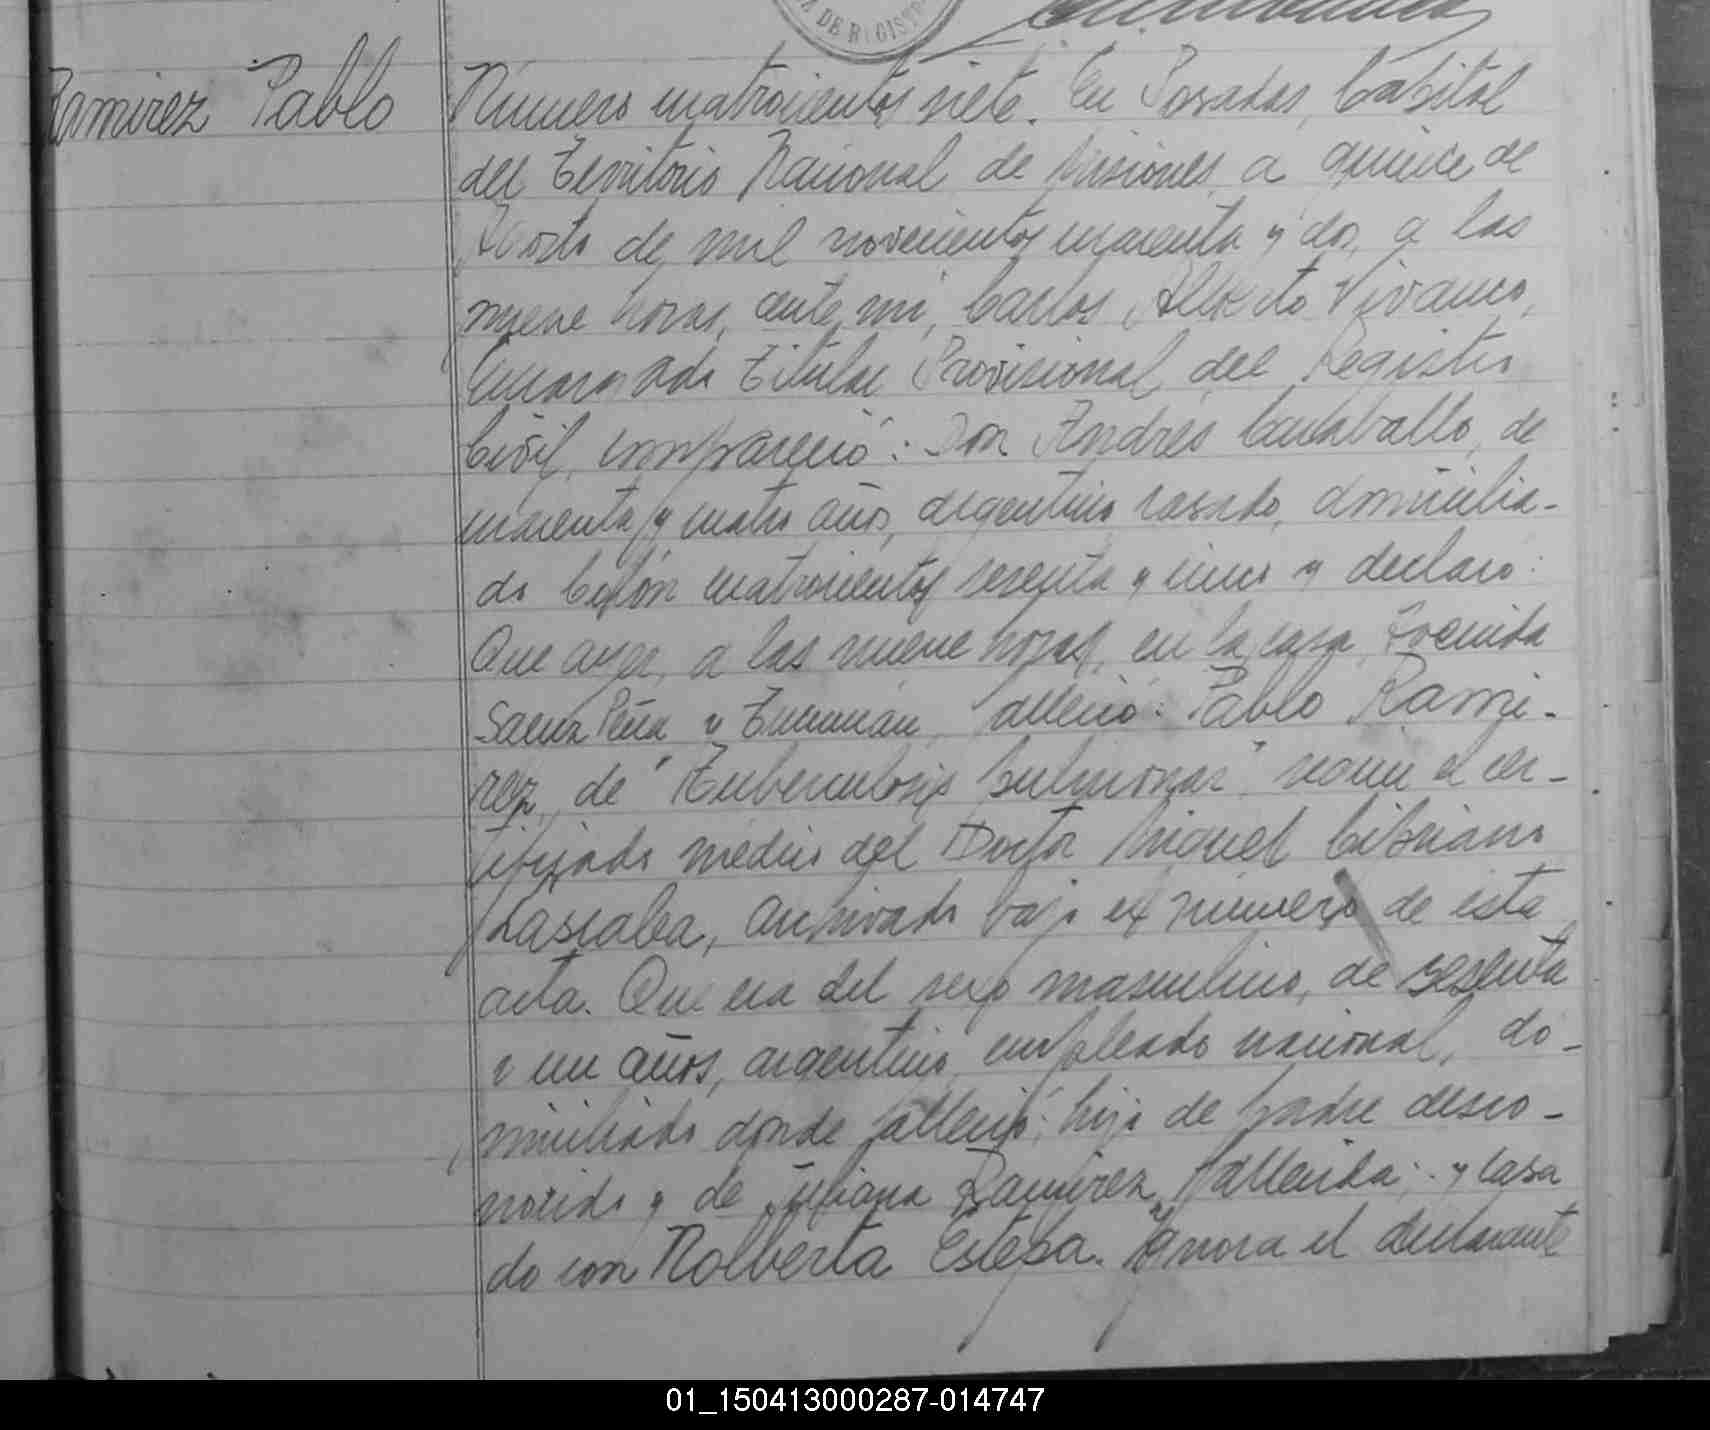 DE REGISTR
Ramirez Pablo
Número cuatrocientos siete. En Posadas, Capital
del Territorio Nacional de Misiones, a quince de
Agosto de mil novecientos cuarenta y dos, a las
nueve horas, ante mi, Carlos Alberto Vivanco,
Encargado Titular Provisional del Registro
Civil, compareció: Don Andrés Caraballo, de
cuarenta y cuatro años, argentino casado, domicilia-
do Colón cuatrocientos sesenta y cinco y declaró:
Que ayer, a las nueve horas, en la casa Avenida
Saenz Peña y Tucumán, falleció: Pablo Rami-
rez, de "Tuberculosis pulmonar" según el cer-
tificado médico del Doctor Miguel Cipriano
Lascalea, archivado bajo el número de esta
acta. Que era del sexo masculino, de sesenta
y un años, argentino, empleado nacional, do-
miciliado donde falleció; hijo de padre desco-
nocido y de Juliana Ramirez, fallecida; y casa
do con Rolberta Estepa. Ignora el declarante
01_150413000287-014747